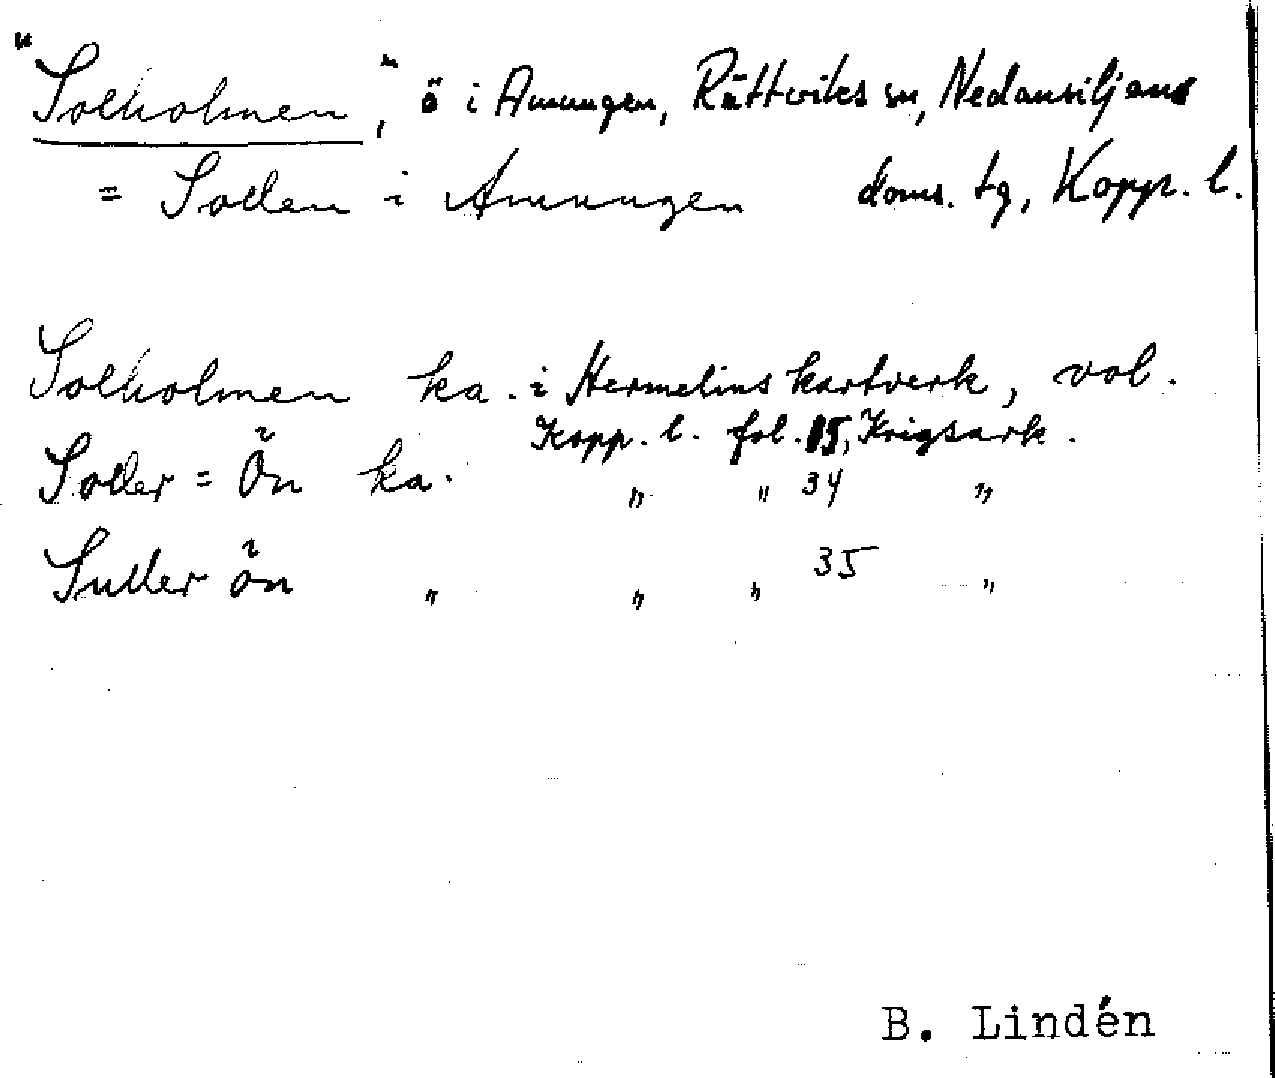 "Solholmen", ö i Amungen, Rättviks sn, Nedansiljans
= Sollen i Amungen doms. tg, Kopp. l.
Solholmen ka. i Hermelins kartverk, vol.
Kopp. l. fol. 15, Krigsark.
Soller = Ön ka. " " 34 "
Suller ön " " " 35 "
B. Lindén